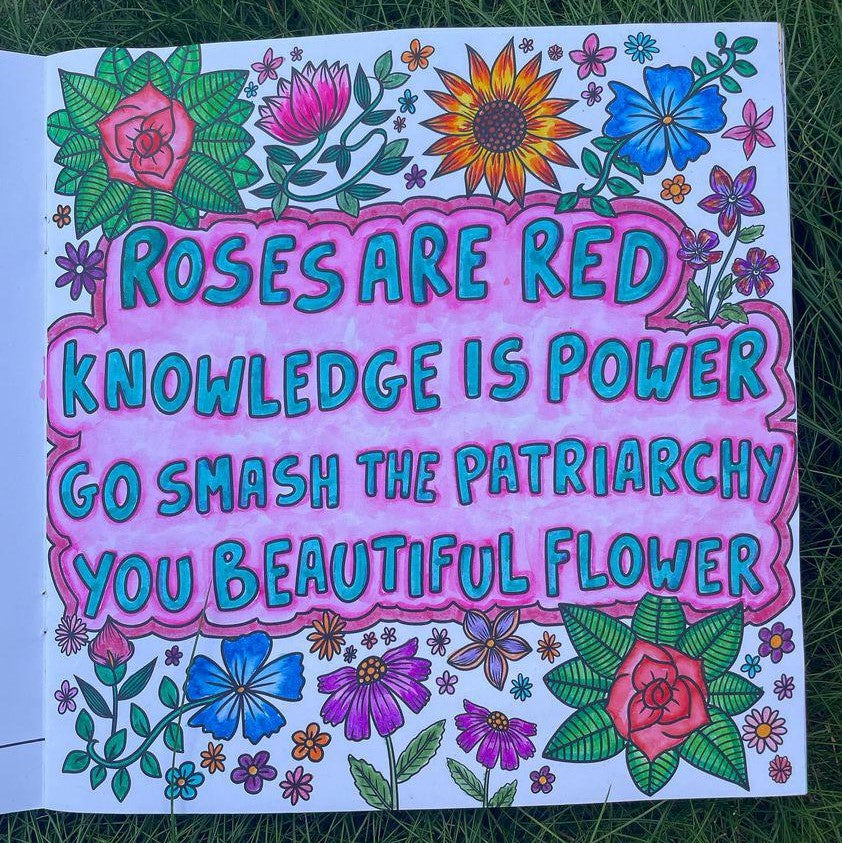 ROSES ARE RED
KNOWLEDGE IS POWER
GO SMASH THE PATRIARCHY
YOU BEAUTIFUL FLOWER